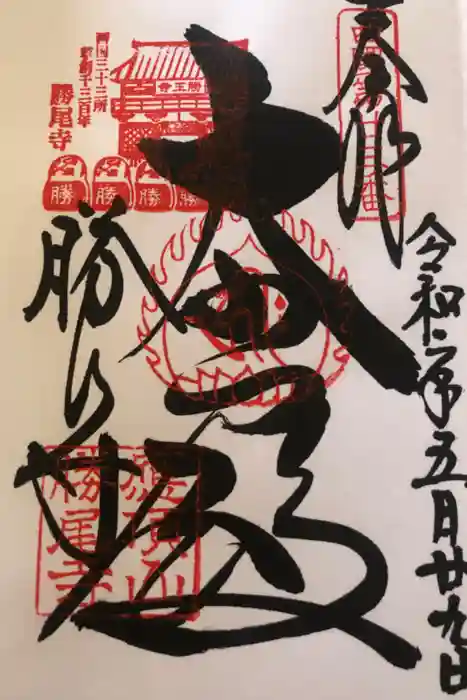 奉拝
西國第廿三番
令和二年五月廿九日
大悲殿
勝尾寺
西国三十三所
草創千三百年
勝尾寺
勝
勝
勝
勝
應頂山
勝尾寺